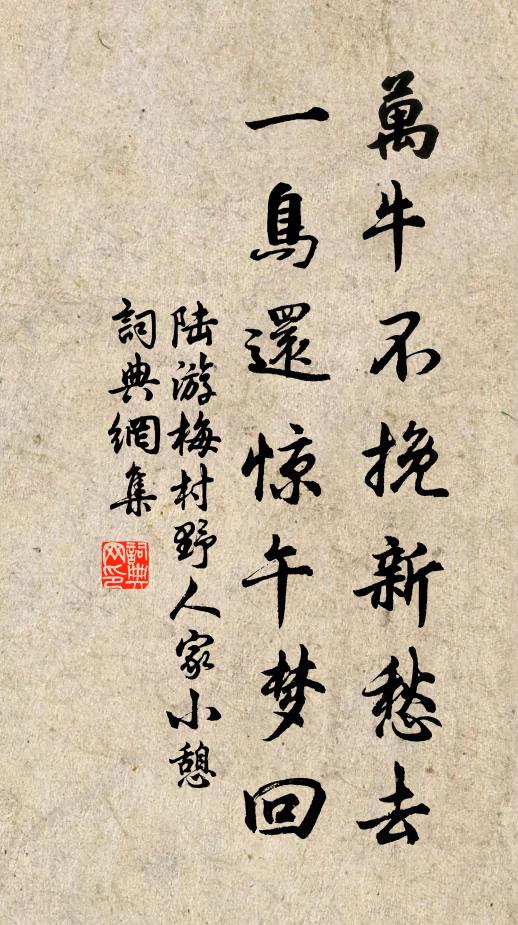 萬牛不挽新愁去
一鳥還惊午梦回
陆游梅村野人家小憩
詞典網集
詞典网印